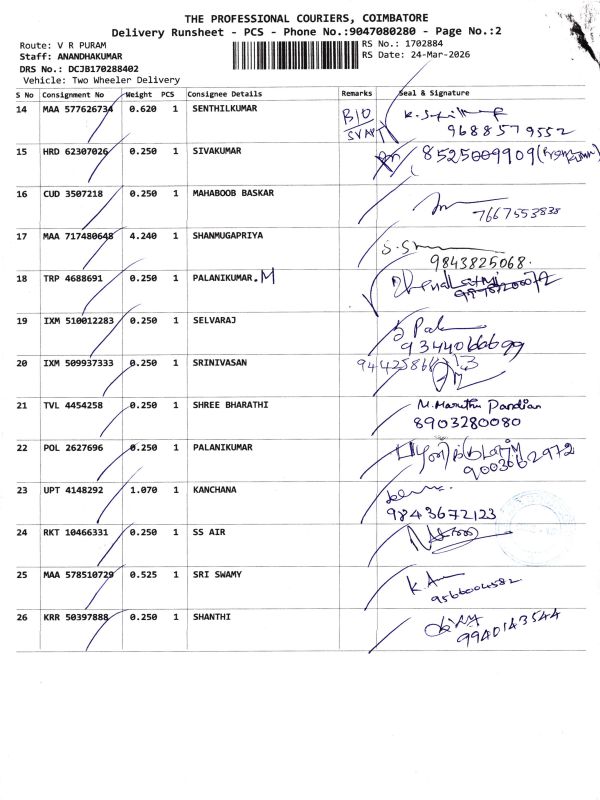 THE PROFESSIONAL COURIERS, COIMBATORE
Delivery Runsheet - PCS - Phone No.:9047080280 - Page No.:2
Route: V R PURAM
RS No.: 1702884
Staff: ANANDHAKUMAR
RS Date: 24-Mar-2026
DRS No.: DCJB170288402
Vehicle: Two Wheeler Delivery
S No Consignment No Weight PCS Consignee Details Remarks Seal & Signature
14 MAA 577626734 0.620 1 SENTHILKUMAR
9688579552
15 HRD 62307026 0.250 1 SIVAKUMAR 8525009909
16 CUD 3507218 0.250 1 MAHABOOB BASKAR
7667553838
17 MAA 717480648 4.240 1 SHANMUGAPRIYA
9843825068.
18 TRP 4688691 0.250 1 PALANIKUMAR.M
19 IXM 510012283 0.250 1 SELVARAJ
9344066699
20 IXM 509937333 0.250 1 SRINIVASAN
21 TVL 4454258 0.250 1 SHREE BHARATHI M. Maruthu Pandian
8903280080
22 POL 2627696 0.250 1 PALANIKUMAR
9003062972
23 UPT 4148292 1.070 1 KANCHANA
9843672123
24 RKT 10466331 0.250 1 SS AIR
25 MAA 578510729 0.525 1 SRI SWAMY
9566004582
26 KRR 50397888 0.250 1 SHANTHI
9940143544